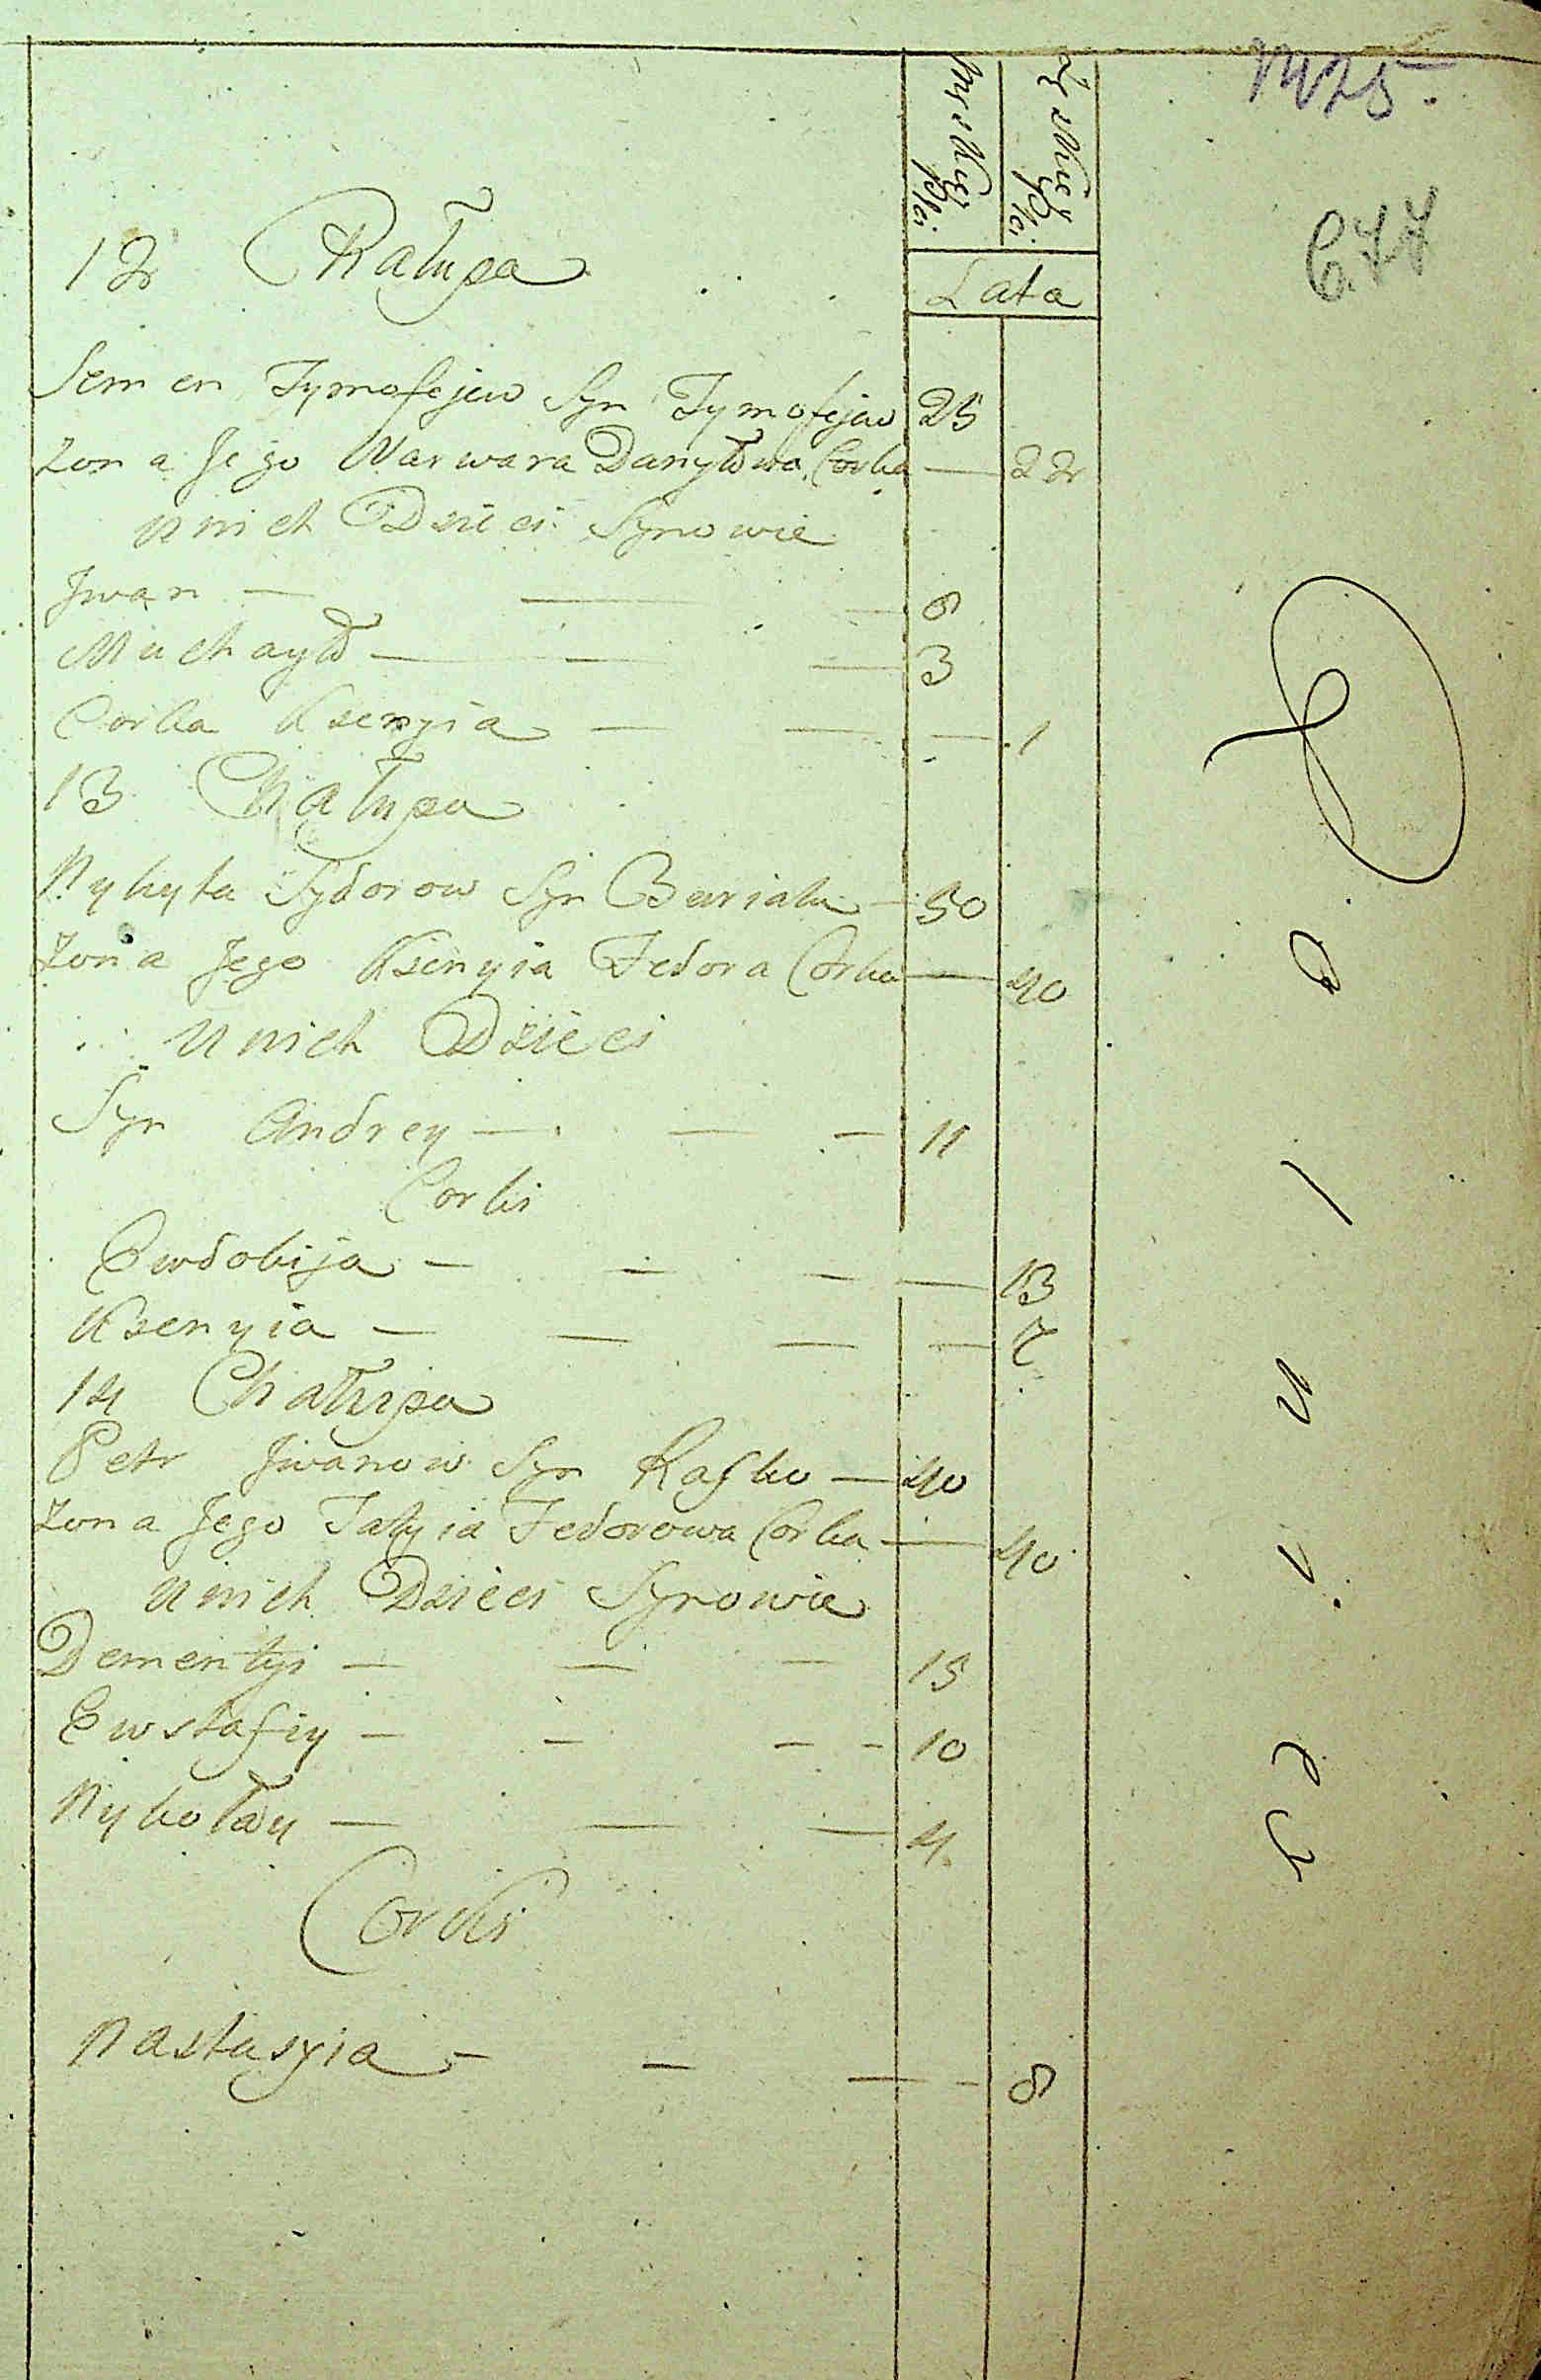 Męskiey Płci
Żeńskiey Płci
677
12 Chałupa
Lata
Semen Tymofejew Syn Tymofejew 25
Żona Jego Warwara Daniłowa Corka — 22
U nich Dzieci Synowie
Jwan — — — 8
Michayło — — — 3
Corka Ksenyia — — — 1
13 Chałupa
Nykyta Sydorow Syn Buriak — 50
Żona Jego Ksenyia Fedora Corka — 40
U nich Dzieci
Syn Andrey — — — 11
Corki
Ewdokija — — — — 13
Ksenyia — — — — 7
14 Chałupa
Petr Jwanow Syn — 40
Żona Jego Tatyia Fedorowa Corka — 40
U nich Dzieci Synowie
Dementyi — — — 15
Ewstafiy — — — — 10
Nykołay — — — 4
Corki
Nastasyia — — — — 8